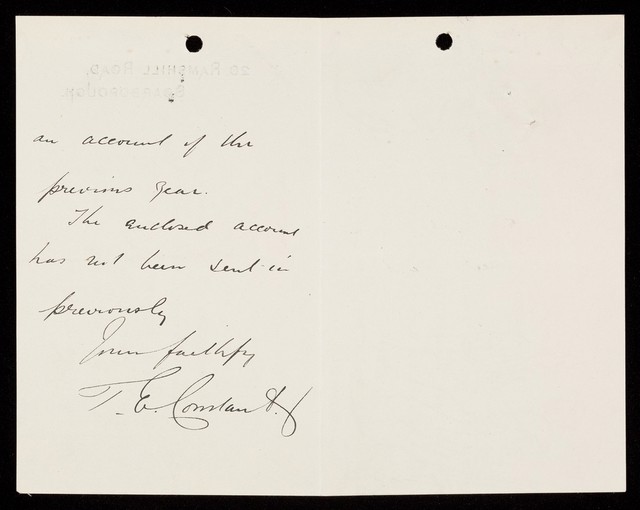 20 RAMSHILL ROAD,
SCARBOROUGH.
an account of the
previous year.
The enclosed account
has not been sent in
previously
Yours faithfy
T. E. Constant.